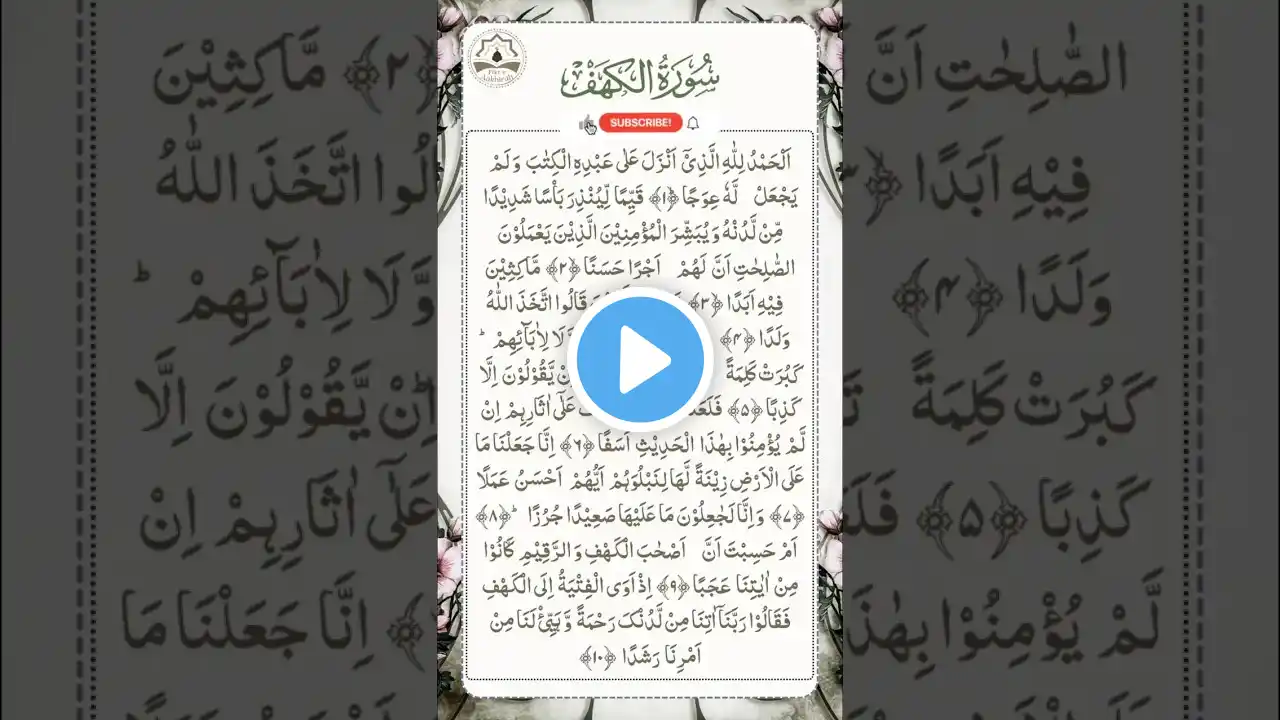 Fikr e Aakhirah
سُورَةُ الْكَهْفِ
SUBSCRIBE!
اَلْحَمْدُ لِلّٰهِ الَّذِیْۤ اَنْزَلَ عَلٰى عَبْدِهِ الْكِتٰبَ وَ لَمْ
یَجْعَلْ لَّهٗ عِوَجًا ﴿۱﴾ قَیِّمًا لِّیُنْذِرَ بَاْسًا شَدِیْدًا
مِّنْ لَّدُنْهُ وَ یُبَشِّرَ الْمُؤْمِنِیْنَ الَّذِیْنَ یَعْمَلُوْنَ
الصّٰلِحٰتِ اَنَّ لَهُمْ اَجْرًا حَسَنًا ﴿۲﴾ مَّاكِثِیْنَ
فِیْهِ اَبَدًا ﴿۳﴾ قَالُوا اتَّخَذَ اللّٰهُ
وَلَدًا ﴿۴﴾ وَّلَا لِاٰبَآئِهِمْ ؕ
كَبُرَتْ كَلِمَةً اِنْ یَّقُوْلُوْنَ اِلَّا
كَذِبًا ﴿۵﴾ عَلٰۤى اٰثَارِهِمْ اِنْ
لَّمْ یُؤْمِنُوْا بِهٰذَا الْحَدِیْثِ اَسَفًا ﴿۶﴾ اِنَّا جَعَلْنَا مَا
عَلَى الْاَرْضِ زِیْنَةً لَّهَا لِنَبْلُوَهُمْ اَیُّهُمْ اَحْسَنُ عَمَلًا
﴿۷﴾ وَ اِنَّا لَجٰعِلُوْنَ مَا عَلَیْهَا صَعِیْدًا جُرُزًا ؕ ﴿۸﴾
اَمْ حَسِبْتَ اَنَّ اَصْحٰبَ الْكَهْفِ وَ الرَّقِیْمِ كَانُوْا
مِنْ اٰیٰتِنَا عَجَبًا ﴿۹﴾ اِذْ اَوَى الْفِتْیَةُ اِلَى الْكَهْفِ
فَقَالُوْا رَبَّنَاۤ اٰتِنَا مِنْ لَّدُنْكَ رَحْمَةً وَّ هَیِّئْ لَنَا مِنْ
اَمْرِنَا رَشَدًا ﴿۱۰﴾